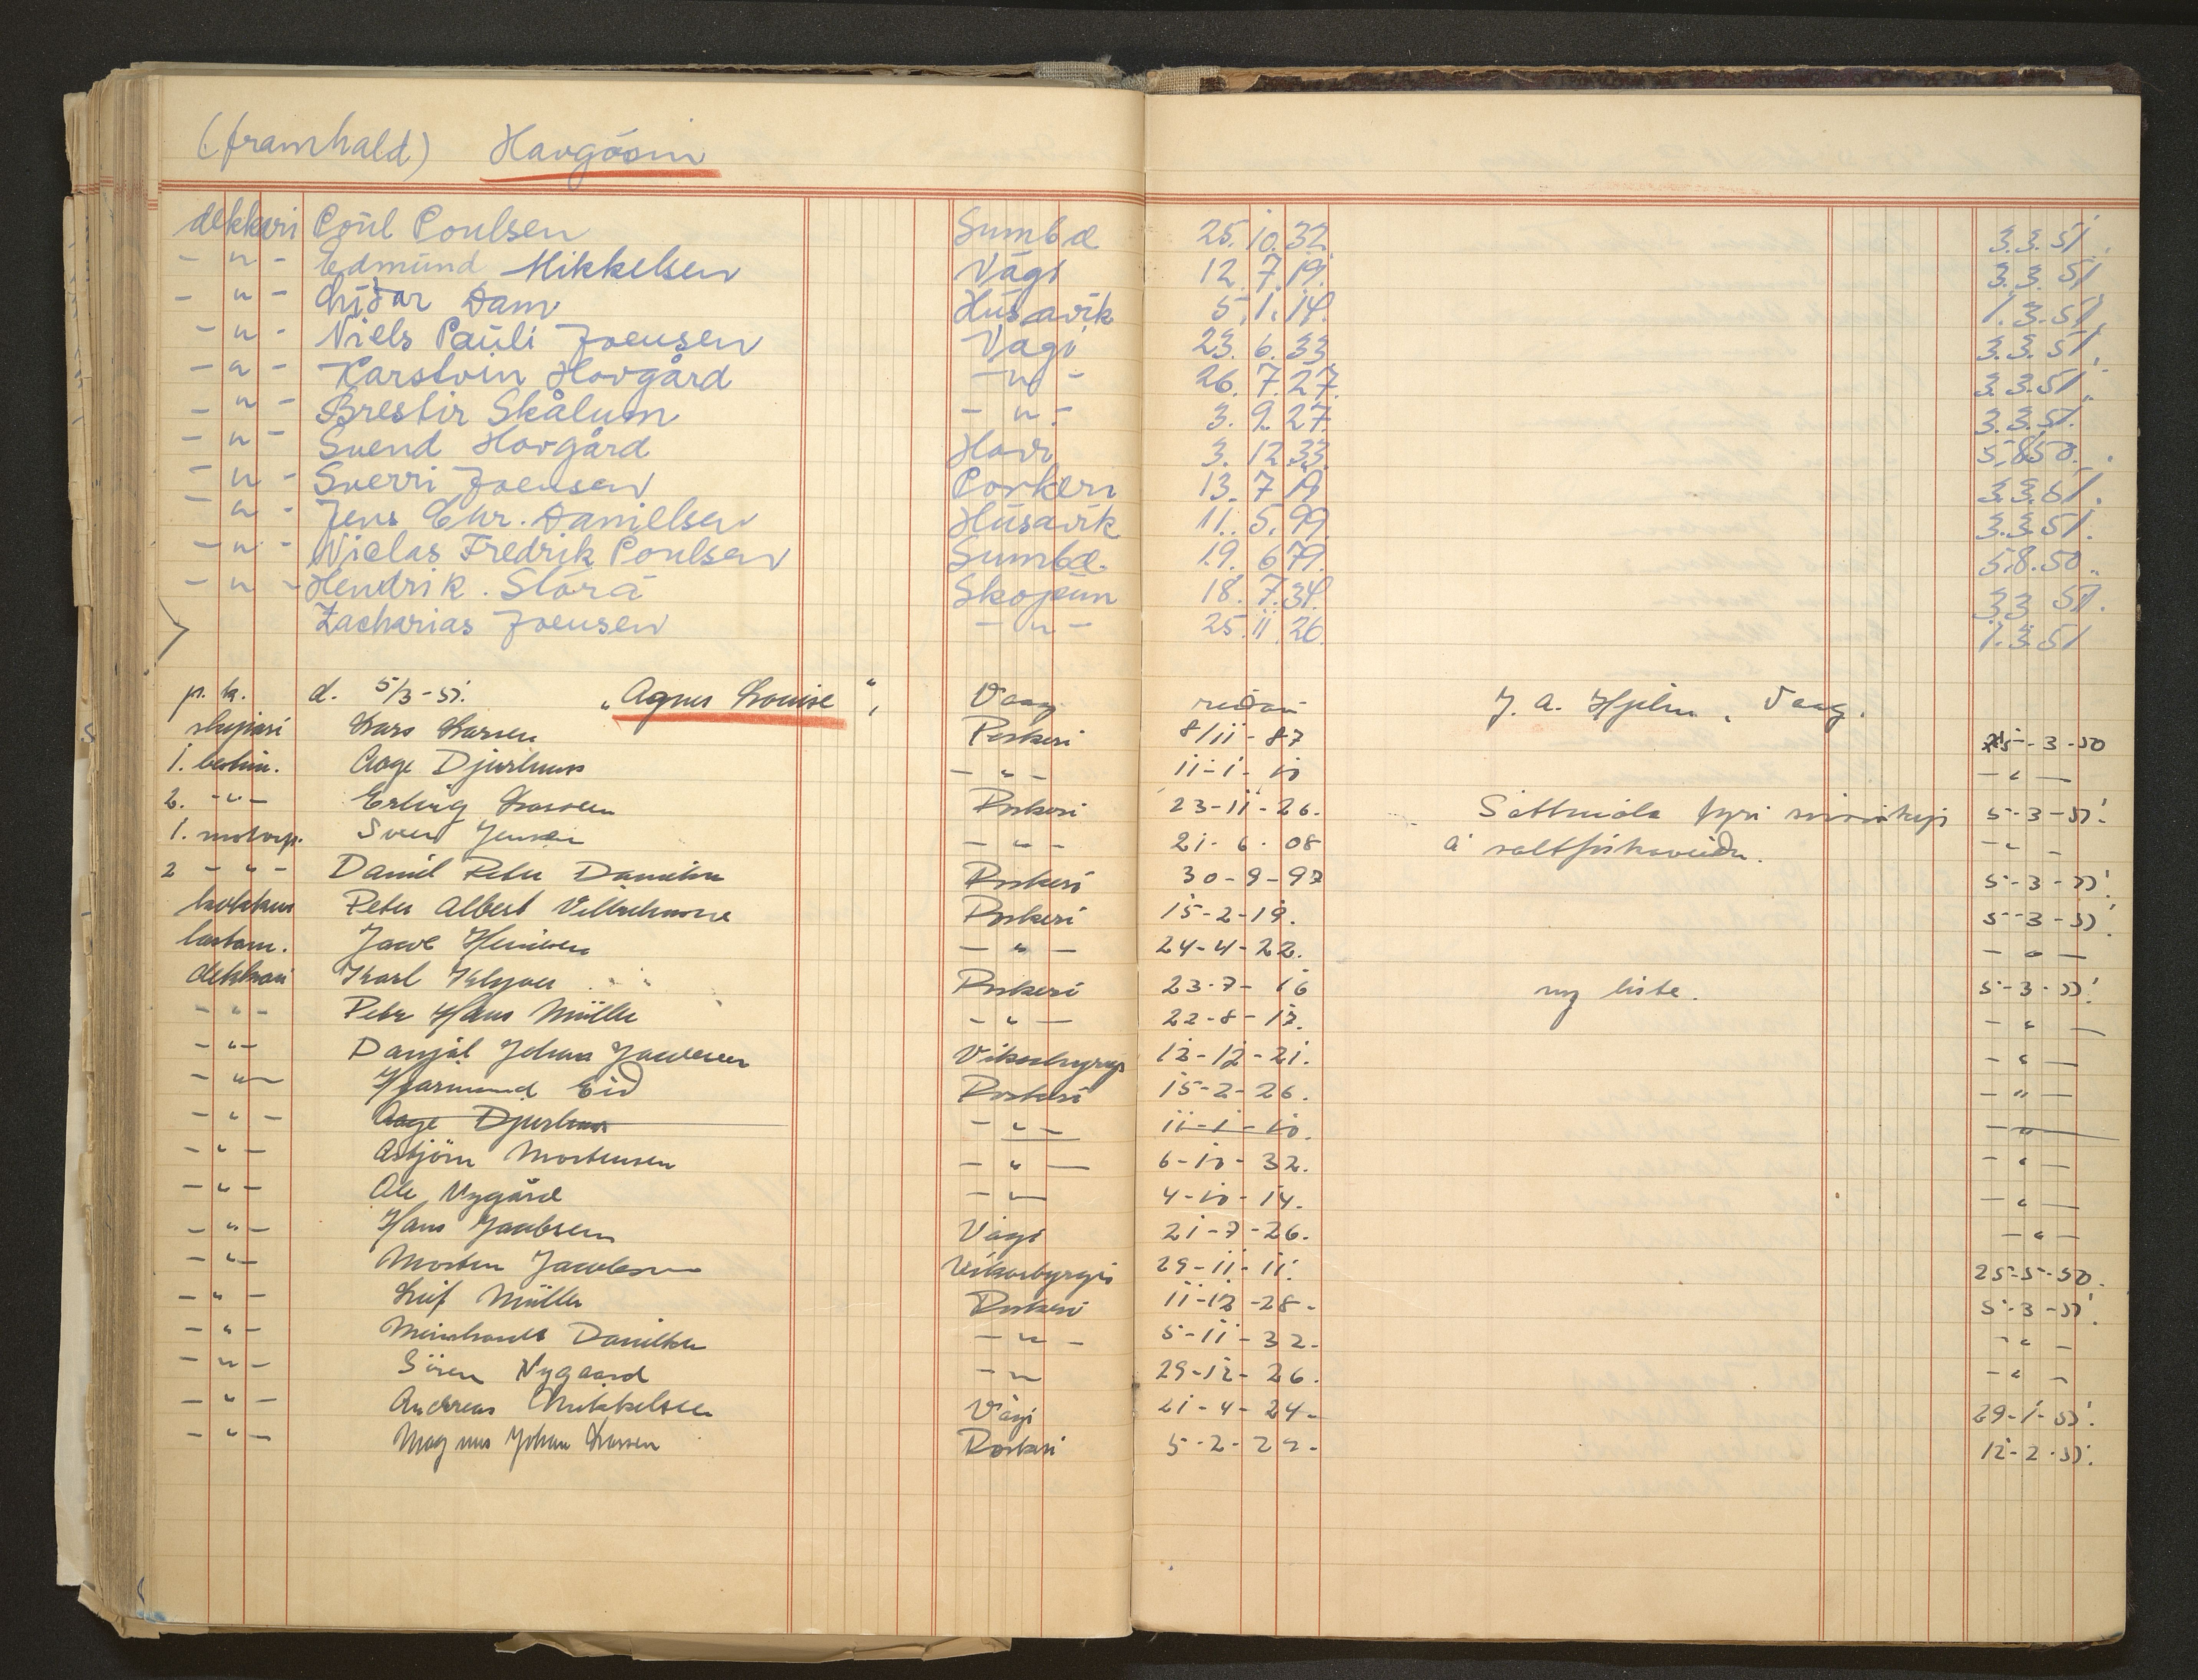 (framhald) Havgásin
dekkari Poul Poulsen Sumbæ 25.10.32. 3.3.51.
- " - Edmund Mikkelsen Vági 12.7.19. 3.3.51
- " - Dam Húsavík 5.1.14. 1.3.51
- " - Niels Pauli Joensen Vági 23.6.33. 3.3.51.
- " - Karstvin Hovgård - " - 26.7.27. 3.3.51.
- " - Brestir Skålum - " - 3.9.27. 3.3.51.
- " - Svend Hovgård Hovi 3.12.33. 5.8.50.
- " - Sverri Joensen Porkeri 13.7.19. 3.3.51.
- " - Jens Chr. Danielsen Húsavík 11.5.99. 3.3.51.
- " - Niclas Fredrik Poulsen Sumbæ. 19.6 79. 5.8.50.
- " - Hendrik. Stórá Skopun 18.7.34. 3.3 51.
Zacharias Joensen - " - 25.11.26. 1.3.51
p. k. d. 5/3-51. „Agnes Louise“, Vaag J. A. Hjelm, Vaag.
skipari Lars Larsen Porkeri 8/11-87 25-3-50
1. bestm. Aage Djurhuus - " - 11-1-10 - " -
2. - " - Erling Larsen Porkeri 23-11-26. Sáttmála fyri 5-3-51.
1. motorp. Sven Jensen - " - 21-6-08 á saltfiskaveiðu. - " -
2 - " - Daniel Peter Danielsen Porkeri 30-9-97 5-3-51.
kokkur Peter Albert Vilhelmsen Porkeri 15-2-19. 5-3-51.
lastam. - " - 24-4-22. - " -
dekkari Karl Porkeri 23-7-16 ny liste. 5-3-51.
- " - Petr Hans Müller - " - 22-8-17. - " -
- " - Danjál Johan Jacobsen Vikarbyrgi 12-12-21. - " -
- " - Hjarmund Eid Porkeri 15-2-26. - " -
- " - Aage Djurhuus - " - 11-1-10. - " -
- " - Asbjörn Mortensen - " - 6-10-32. - " -
- " - Ole Nygård - " - 4-10-14. - " -
- " - Hans Jacobsen Vági 21-7-26. - " -
- " - Morten Jacobsen Vikarbyrgi 29-11-11. 25-5-50.
- " - Leif Müller Porkeri 11-12-28. 5-3-51.
- " - Meinhardt Danielsen - " - 5-11-32. - " -
- " - Sören Nygaard - " 29-12-26. - " -
- " - Andreas Mikkelsen Vági 21-4-24. 29-1-51.
- " - Magnus Johan Larsen Porkeri 5-2-29. 12-2-51.